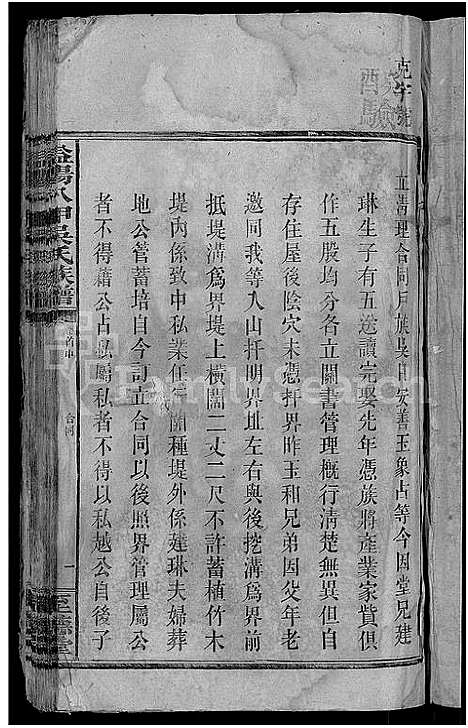 立清理合同戶族吳甲安善玉象占等今因堂兄建
琳生子有五送讀完娶先年憑族將產業家貲俱
作五股均分各立關書管理概行清楚無異但自
存住屋後陰穴未憑扦界昨玉和兄弟因父年老
邀同我等入山扦明界址左右與後挖溝為界前
抵堤溝為界堤上橫闊二丈二尺不許蓄植竹木
堤內係致中私業任伊開種堤外係建琳夫婦葬
地公管蓄培自今訂立合同以後照界管理屬公
者不得藉公占私屬私者不得以私越公自後子
益陽八甲吳氏族譜
合同
一
至德堂
FamilySearch